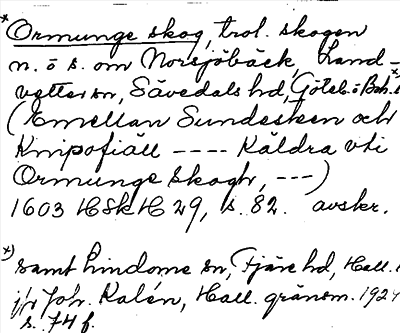 *Ormunge skog, trol. skogen
n. ö s. om Norsjöbäck Land-
vetter sn, Sävedals hd, Göteb. o Boh. l. *)
(Emellan Sundesken och
Knipofiäll ---- Käldra vti
Ormunge skogh, ---)
1603 HSkH 29, s. 82. avskr.
*) samt Lindome sn, Fjäre hd, Hall.
jfr Joh. Kalén, Hall. gränsm. 1924
s. 74 f.